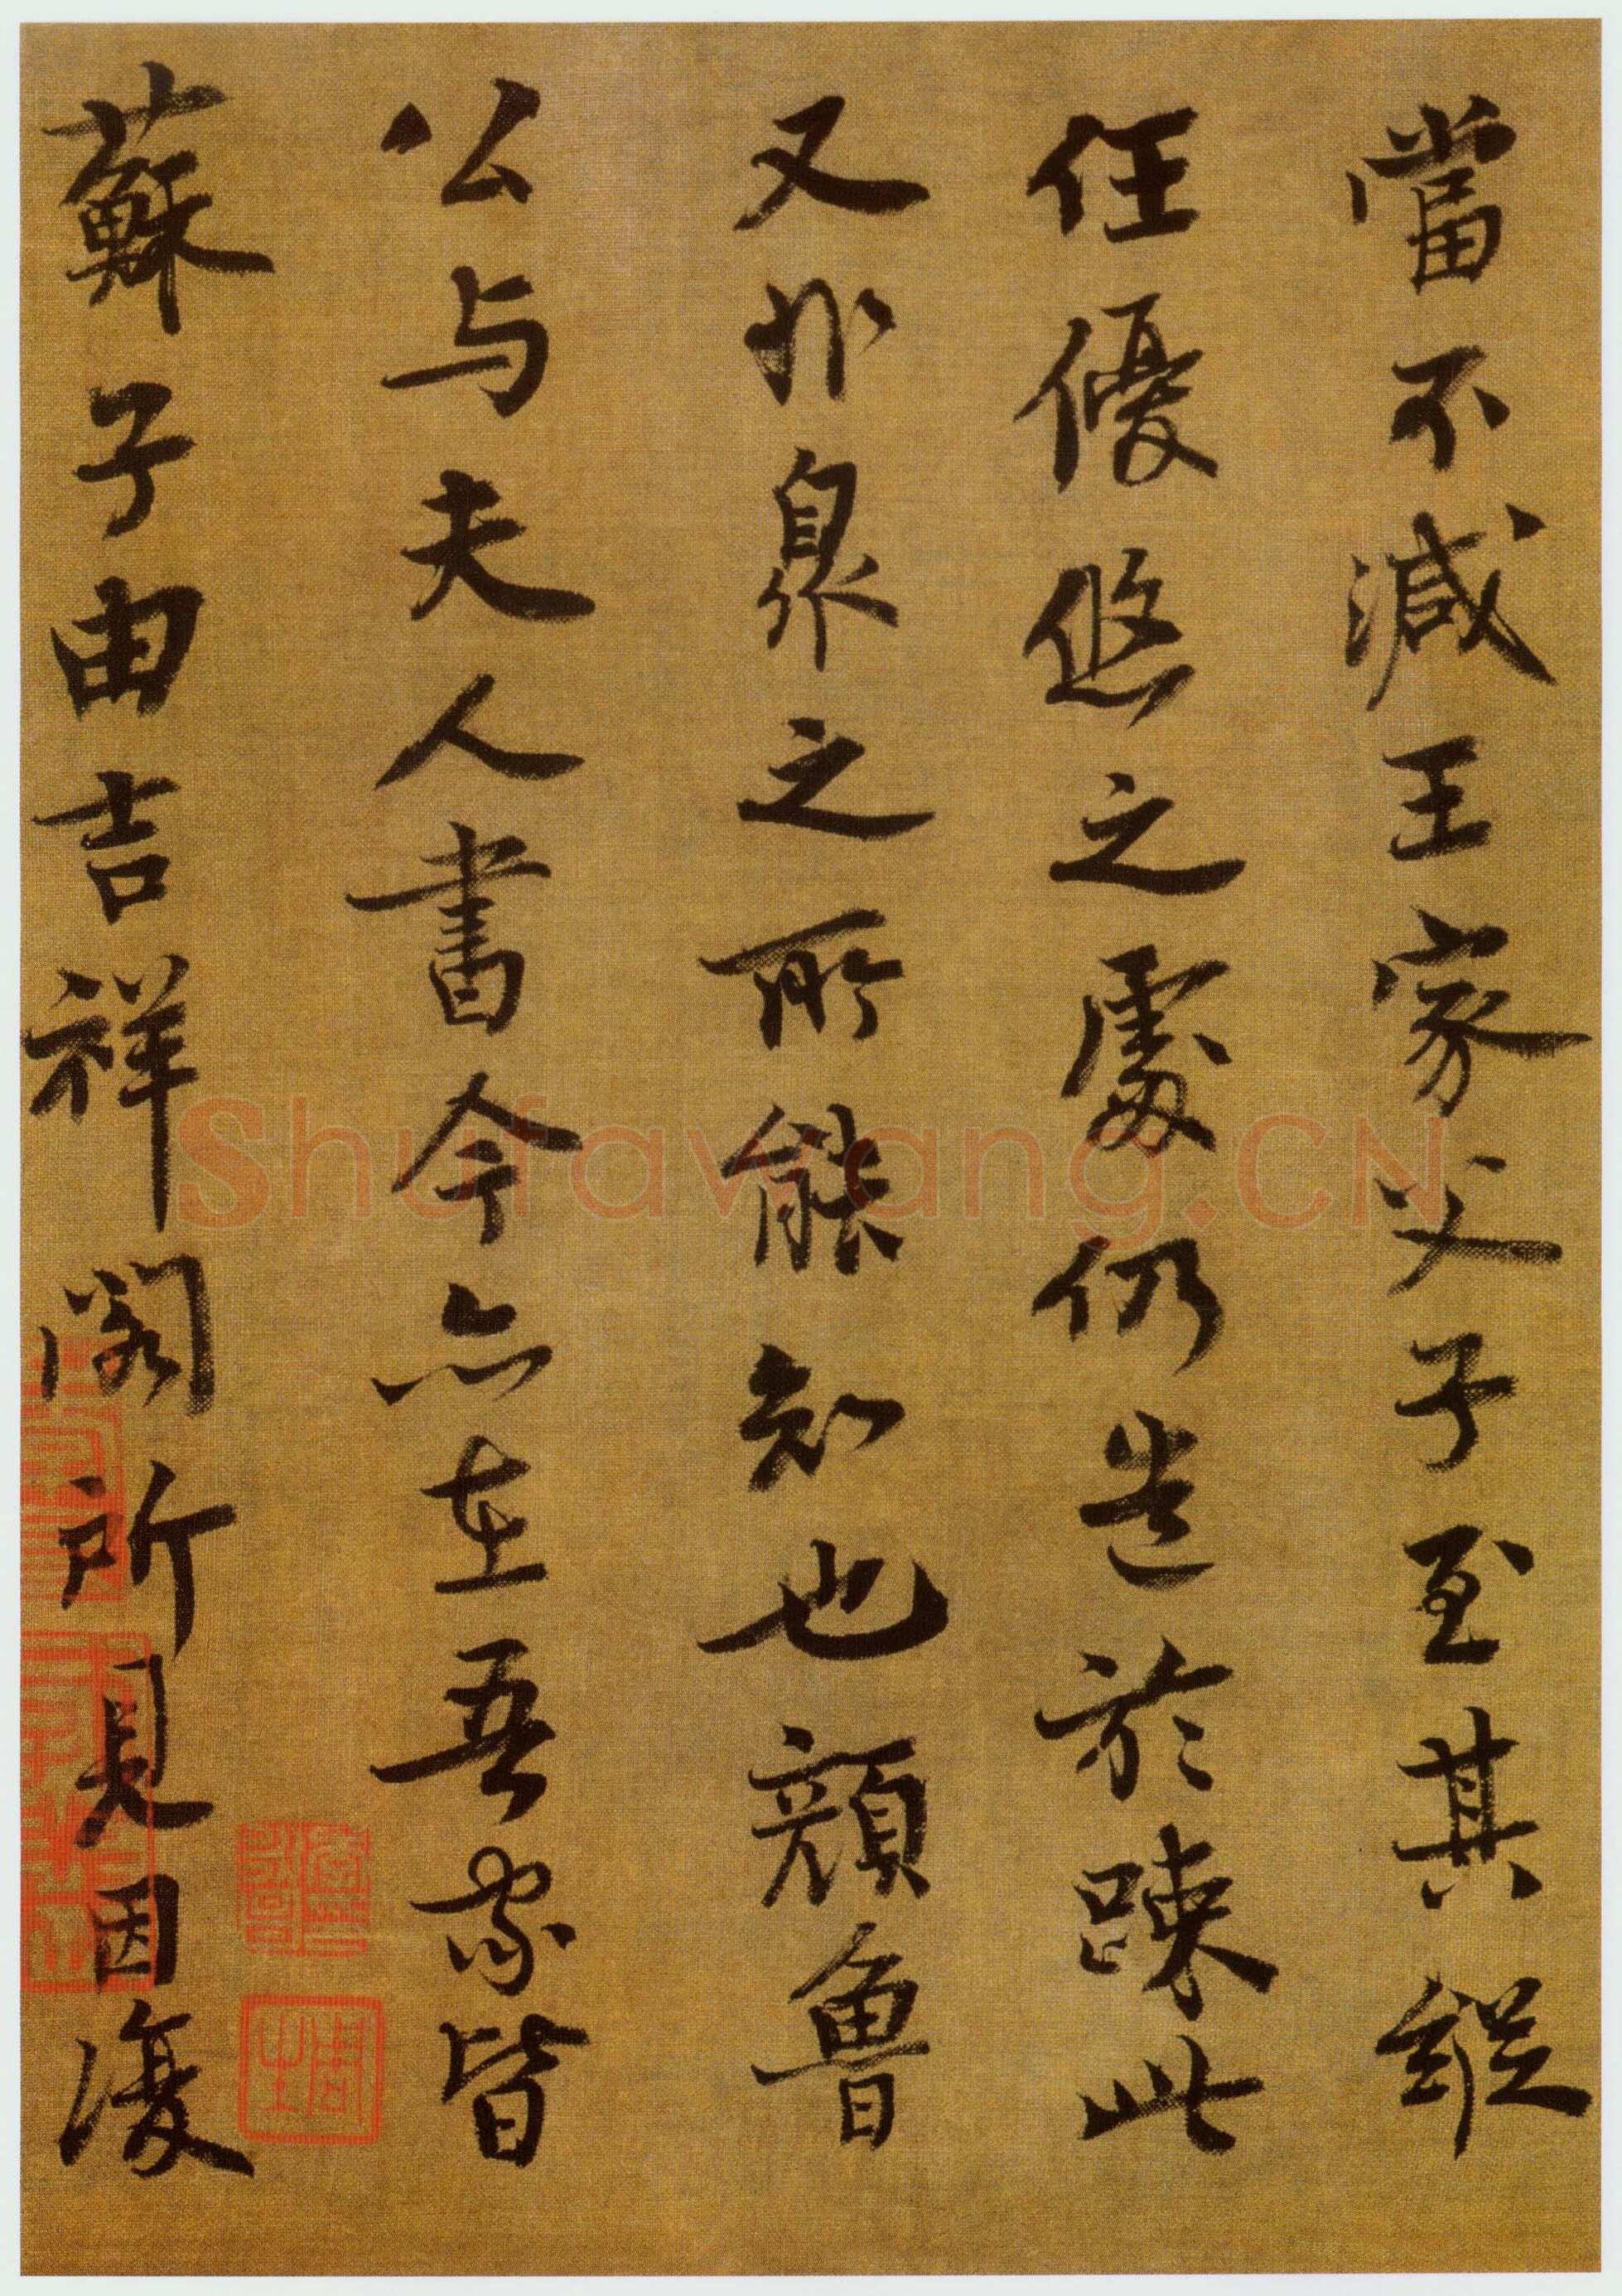 當不減王家父子至其縱
任優悠之處仍造於踈此
又非衆之所能知也顏魯
公与夫人書今亦在吾家皆
蘇子由吉祥閣所見因復
Shufawang.CN